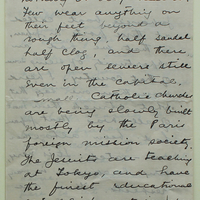 few wear anything on
their feet beyond a
rough thing, half sandal
half clog and there
are open sewers still
even in the capital.
Small Catholic churches
are being slowly built
mostly by the Paris
foreign mission society.
The Jesuits are teaching
at Tokyo, and have
the finest educational